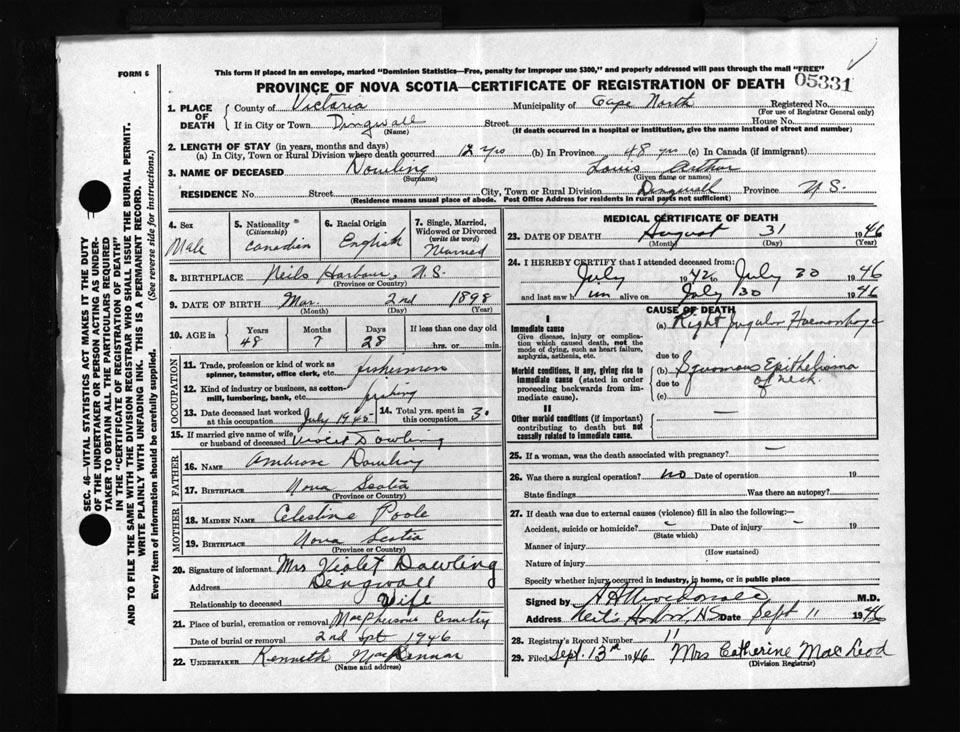 FORM 6
This form if placed in an envelope, marked "Dominion Statistics—Free, penalty for improper use $300," and properly addressed will pass through the mail "FREE"
PROVINCE OF NOVA SCOTIA—CERTIFICATE OF REGISTRATION OF DEATH
05331
1. PLACE OF DEATH { County of Victoria Municipality of Cape North Registered No.
(For use of Registrar General only)
If in City or Town Dingwall Street House No.
(Name) (If death occurred in a hospital or institution, give the name instead of street and number)
2. LENGTH OF STAY (in years, months and days)
(a) In City, Town or Rural Division where death occurred 12 yrs (b) In Province 48 yrs (c) In Canada (if immigrant)
3. NAME OF DECEASED Dowling Louis Arthur
(Surname) (Given name or names)
RESIDENCE No. Street City, Town or Rural Division Dingwall Province N.S.
(Residence means usual place of abode. Post Office Address for residents in rural parts not sufficient)
4. Sex Male
5. Nationality (Citizenship) Canadian
6. Racial Origin English
7. Single, Married, Widowed or Divorced (write the word) Married
8. BIRTHPLACE Neils Harbour, N.S.
(Province or Country)
9. DATE OF BIRTH Mar. 2nd 1898
(Month) (Day) (Year)
10. AGE in { Years 48 Months 7 Days 28 If less than one day old
hrs. or min.
OCCUPATION
11. Trade, profession or kind of work as spinner, teamster, office clerk, etc. fisherman
12. Kind of industry or business, as cotton-mill, lumbering, bank, etc. fishing
13. Date deceased last worked at this occupation July 1945
14. Total yrs. spent in this occupation 30
15. If married give name of wife or husband of deceased Violet Dowling
FATHER
16. NAME Ambrose Dowling
17. BIRTHPLACE Nova Scotia
(Province or Country)
MOTHER
18. MAIDEN NAME Celestine Poole
19. BIRTHPLACE Nova Scotia
(Province or Country)
20. Signature of informant Mrs Violet Dowling
Address Dengwall
Relationship to deceased Wife
21. Place of burial, cremation or removal MacPhersons Cemetry
Date of burial or removal 2nd Spt 1946
22. UNDERTAKER Kenneth MacKinnon
(Name and address)
MEDICAL CERTIFICATE OF DEATH
23. DATE OF DEATH August 31 1946
(Month) (Day) (Year)
24. I HEREBY CERTIFY that I attended deceased from:
July 1942 to July 30 1946
and last saw him alive on July 30 1946
CAUSE OF DEATH
I
Immediate cause
Give disease, injury or complication which caused death, not the mode of dying, such as heart failure, asphyxia, asthenia, etc.
(a) Right Jugular Haemorrhage
due to
Morbid conditions, if any, giving rise to immediate cause (stated in order proceeding backwards from immediate cause).
(b) Squamous Epithelioma of neck.
due to
(c)
II
Other morbid conditions (if important) contributing to death but not causally related to immediate cause.
25. If a woman, was the death associated with pregnancy? —
26. Was there a surgical operation? no Date of operation 19
State findings Was there an autopsy?
27. If death was due to external causes (violence) fill in also the following:—
Accident, suicide or homicide? – Date of injury – 19
(State which)
Manner of injury
(How sustained)
Nature of injury
Specify whether injury occurred in industry, in home, or in public place
Signed by M.D.
Address Neil's Harbor, NS Date Sept 11 1946
28. Registrar's Record Number 11
29. Filed Sept. 13th 1946 Mrs Catherine MacLeod
(Division Registrar)
SEC. 46—VITAL STATISTICS ACT MAKES IT THE DUTY
OF THE UNDERTAKER OR PERSON ACTING AS UNDER-
TAKER TO OBTAIN ALL THE PARTICULARS REQUIRED
IN THE "CERTIFICATE OF REGISTRATION OF DEATH"
AND TO FILE THE SAME WITH THE DIVISION REGISTRAR WHO SHALL ISSUE THE BURIAL PERMIT.
WRITE PLAINLY WITH UNFADING INK. THIS IS A PERMANENT RECORD.
Every item of information should be carefully supplied. (See reverse side for instructions.)